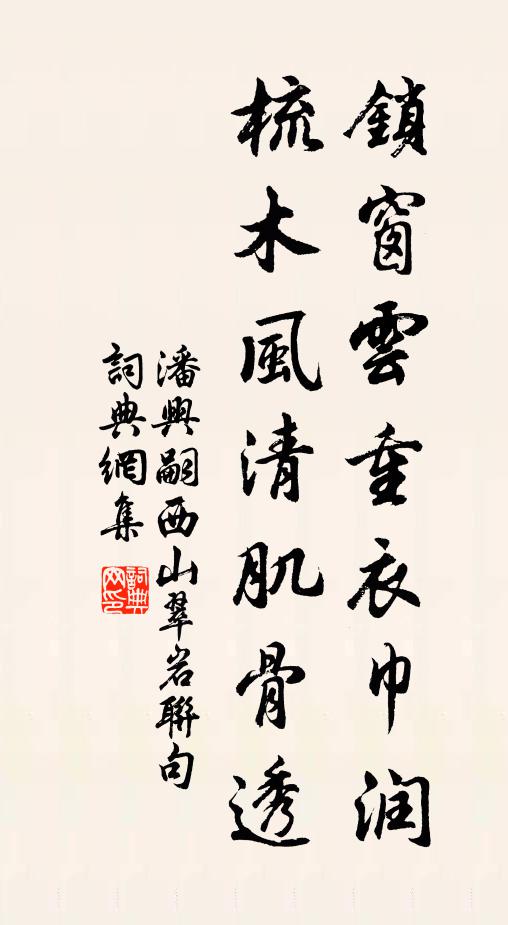 鎖窗雲重衣巾润
梳木風清肌骨透
潘興嗣西山翠岩聯句
詞典網集
詞典网印